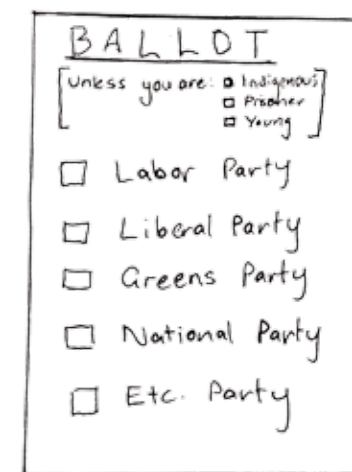 BALLOT
[Unless you are: Indigenous
Prisoner
Young]
Labor Party
Liberal Party
Greens Party
National Party
Etc. Party